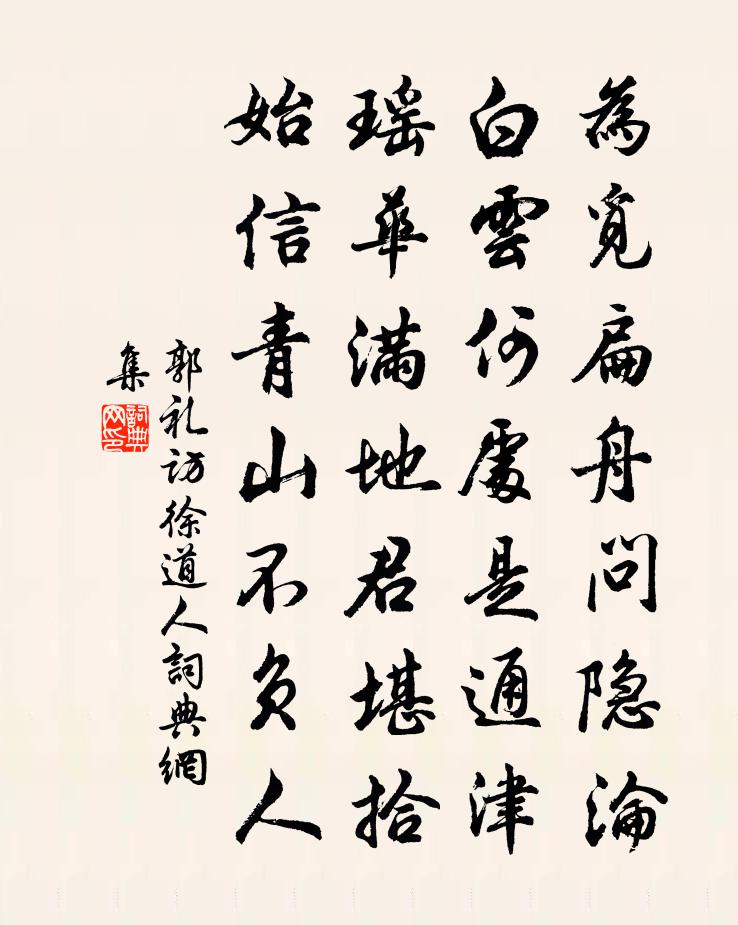 為覓扁舟問隐淪
白雲何處是通津
瑶華满地君堪拾
始信青山不负人
郭礼访徐道人詞典網
集
詞典网印